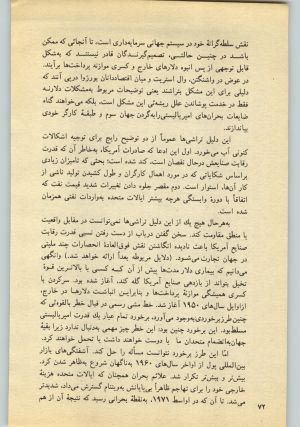 نقش سلطه‌گرانهٔ خود در سیستم جهانی سرمایه‌داری است، تا آنجائی که ممکن
باشد در چنین حالتی، تصمیم‌گیرندگان قادر نیستند که بشکل
قابل توجهی از پس انبوه دلارهای خارج و کسری موازنه پرداخت‌ها برآیند.
در عوض در واشنگتن، وال استریت و میان اقتصاددانان بورژوا درپی آنند که
دلیلی برای این مشکل بتراشند یعنی توضیحات مربوط به‌مشکلات دلارنه
فقط در خدمت پوشاندن علل ریشه‌ئی این مشکل است، بلکه می‌خواهند گناه
بحران‌های امپریالیستی را به‌گردن جهان سوم و طبقهٔ کارگر خودی
بیاندازند.
این دلیل تراشی‌ها عموماً از دو توضیح رایج برای توجیه اشکالات
کنونی آب می‌خورد. اول این ادعا که صادرات آمریکا، به‌خاطر آن که قدرت
رقابت صنایعش درحال نقصان است، کند شده است؛ بحثی که تامیزان زیادی
براساس شکایاتی که در مورد اهمال کارگران و طول کشیدن تولید ناشی از
کار آن‌ها، استوار است. دوم مقصر جلوه دادن تغییرات شدید قیمت نفت که
اتفاقاً با دورهٔ وابستگی هرچه بیشتر ایالات متحده به‌واردات نفتی همزمان
شده است.
به‌هرحال هیچ یك از این دلیل تراشی‌ها نمی‌توانست در مقابل واقعیت
یا منطق مقاومت کند. سخن گفتن درباب از دست رفتن نسبی قدرت رقابت
صنایع آمریکا باعث نادیده انگاشتن نقش فوق‌العادهٔ انحصارات چند ملیتی
در جهان تجارت می‌شود. (دلایل مربوطه بعداً ارائه خواهد شد.) وانگهی
می‌دانیم که بیماری دلار مدت‌ها پیش از آن که کسی با بالاترین قوهٔ
تخیل بتواند از بازدهی صنایع آمریکا گله کند، آغاز شده بود. سرکردن با
کسری همیشگی موازنهٔ پرداخت‌ها و بنابراین انباشت دلارها در خارج،
ازاوایل سال‌های ۱۹۵۰ آغاز شد. خط مشی رسمی در قبال خطر بالقوه‌ئی که
چنین طرز برخوردی به‌وجود می‌آورد، برخورد تمام عیار یك قدرت امپریالیستی
مسلط بود. این برخورد چنین بود: این خطر چیز مهمی به‌دنبال ندارد زیرا بقیهٔ
جهان به‌انضمام متحدان ما یا دوست خواهند داشت یا تحمل خواهند کرد.
اما این طرز برخورد نتوانست مسأله را حل کند. آشفتگی‌های بازار
بین‌المللی پول از اواخر سال‌های ۱۹۶۰ به‌ناگهان شروع به‌ظاهر شدن کرد.
بیش‌تر و بیش‌تر تکرار شد. علائم بحران همچنان که ایالات متحده هزینهٔ
خارجی خود را برای تهاجم ظاهراً بی‌پایانش به‌ویتنام گسترش می‌داد، شدیدتر
می‌شد. تا آن که در اواسط ۱۹۷۱، به‌نقطهٔ بحرانی رسید که نتیجهٔ آن از هم
۷۲